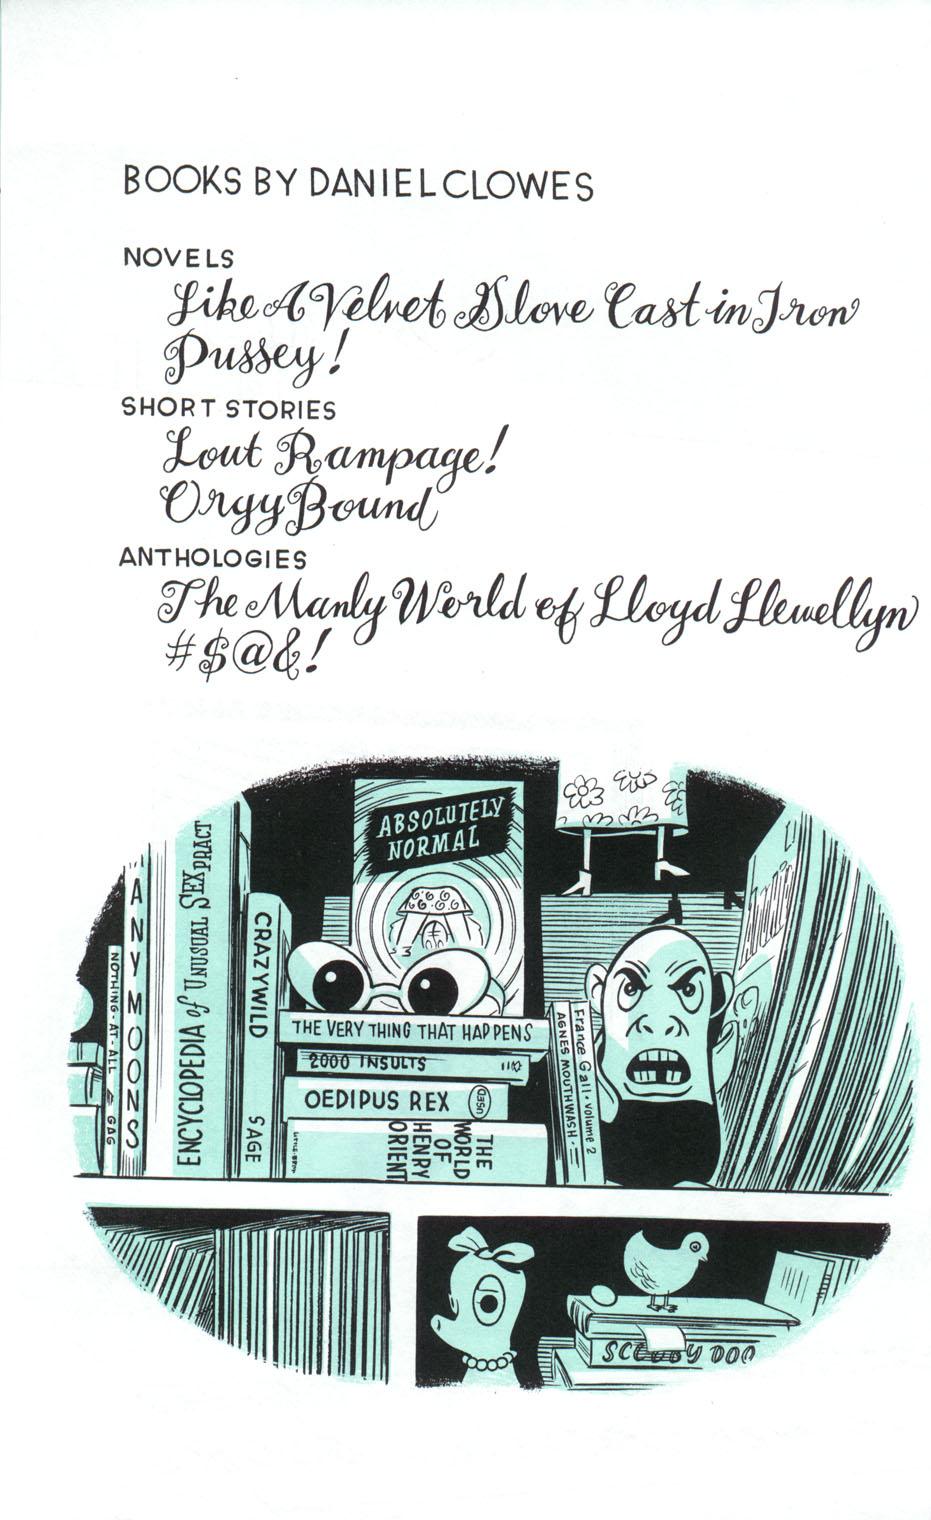 BOOKS BY DANIEL CLOWES
NOVELS
Like A Velvet Glove Cast in Iron
Pussey!
SHORT STORIES
Lout Rampage!
Orgy Bound
ANTHOLOGIES
The Manly World of Lloyd Llewellyn
#$@&!
ABSOLUTELY
NORMAL
NOTHING-AT-ALL GAG
ANY MOONS
ENCYCLOPEDIA of UNUSUAL SEX PRACT
CRAZYWILD SAGE
THE VERY THING THAT HAPPENS
2000 INSULTS
OEDIPUS REX USED
THE
WORLD
OF
HENRY
ORIENT
France Gall • Volume 2
AGNES MOUTHWASH
SCOOBY DOO